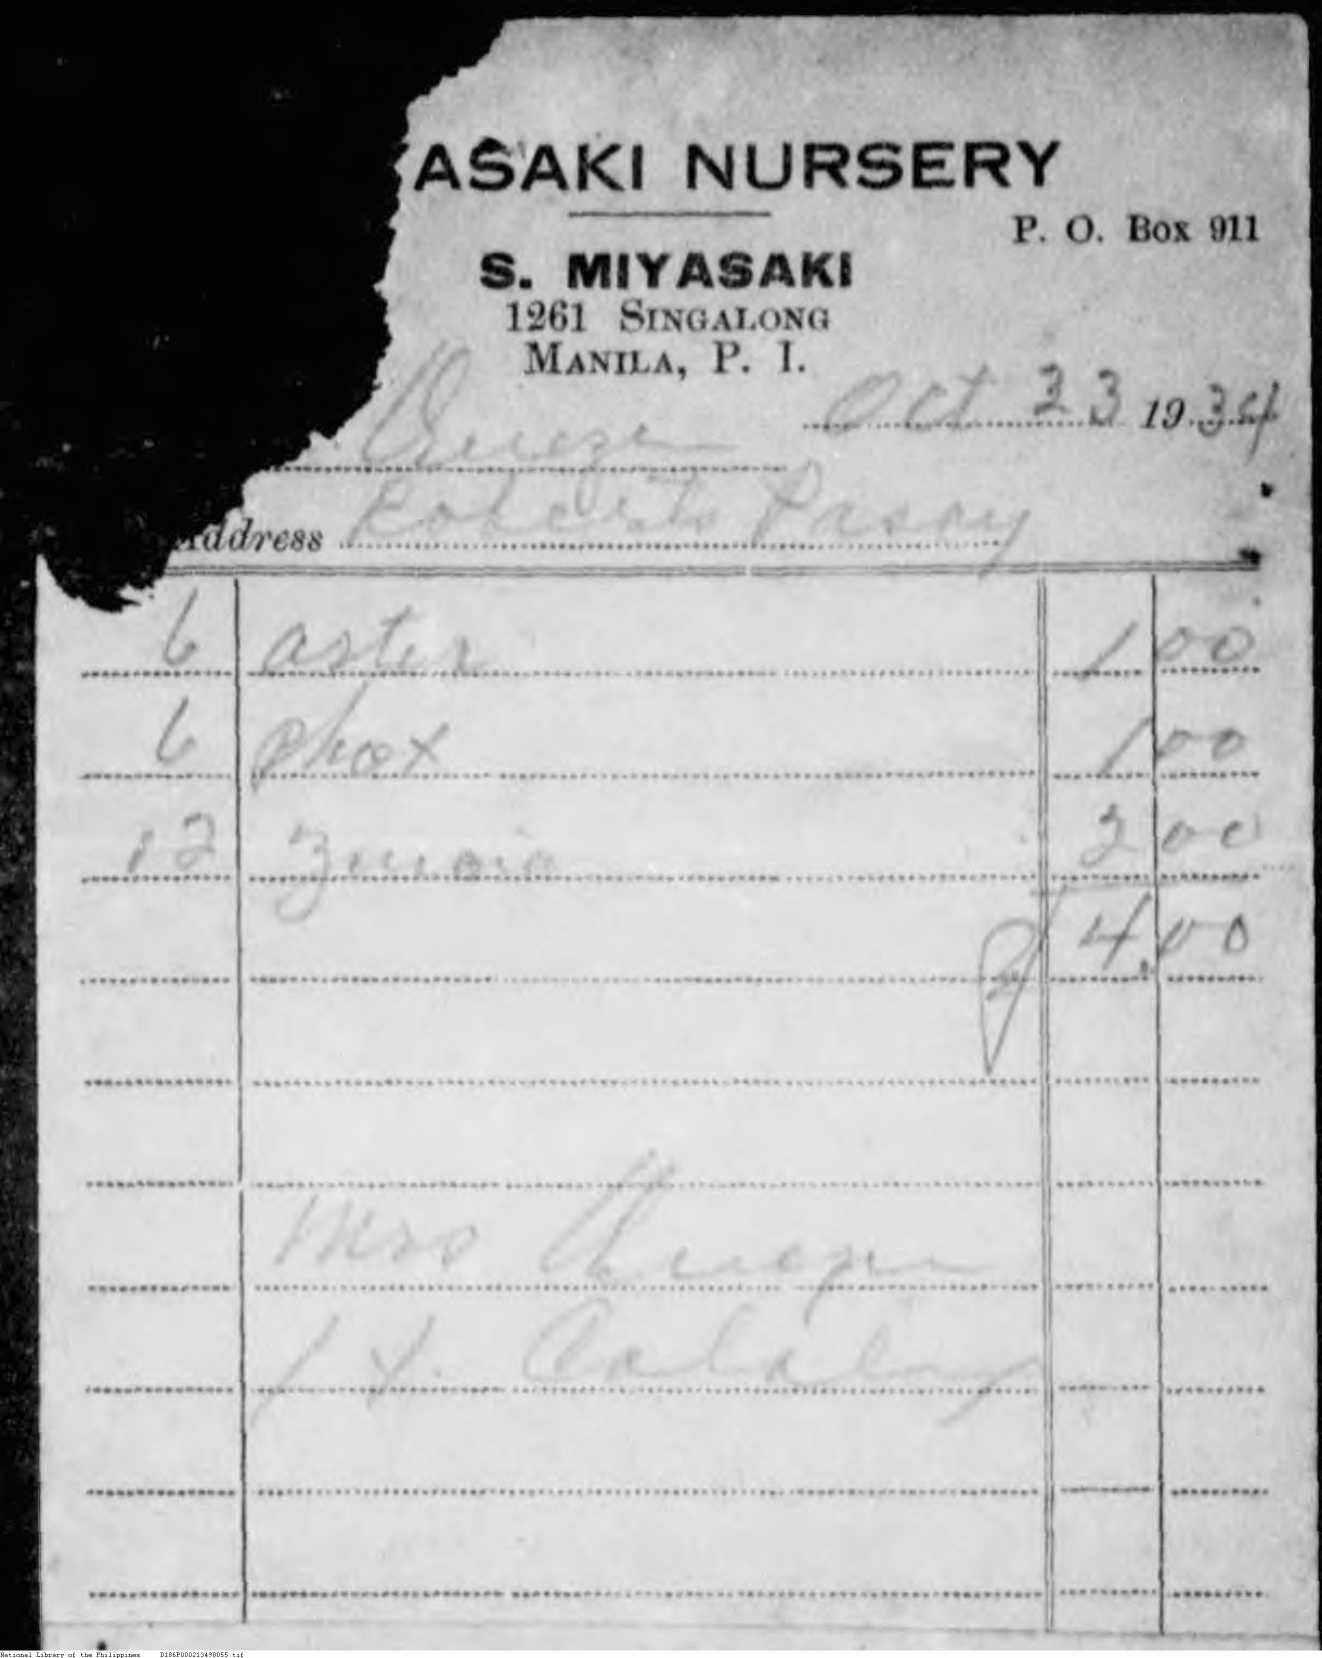 YASAKI NURSERY
P. O. Box 911
S. MIYASAKI
1261 SINGALONG
MANILA, P. I.
Oct 23 1934
Quezon
Address Roberts Pasay
6 aster 1 00
6 phox 1 00
12 Zinnia 2 00
₱ 4.00
Mrs Quezon
National Library of the Philippines D186P000213498055.tif